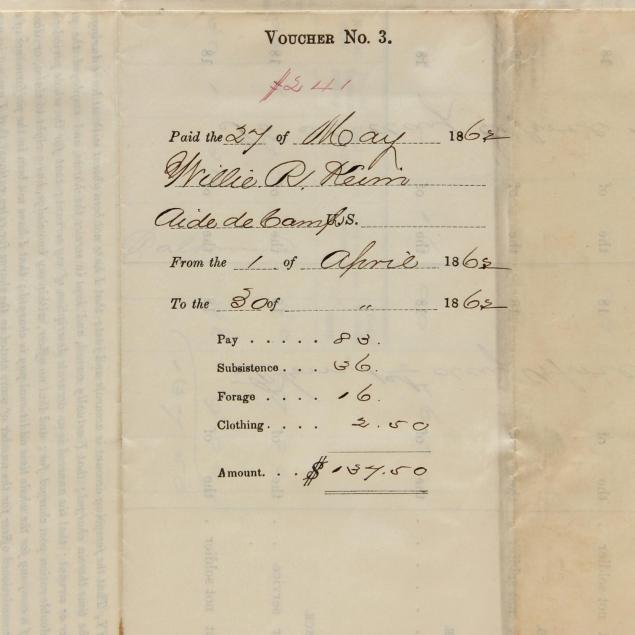 VOUCHER No. 3.
$241
Paid the 27 of May 1862
Willie R. Keim
Aide de Camp U.S.
From the 1 of April 1862
To the 30 of " 1862
Pay ..... 83.
Subsistence ... 36.
Forage .... 16.
Clothing .... 2.50
Amount. . . $137.50